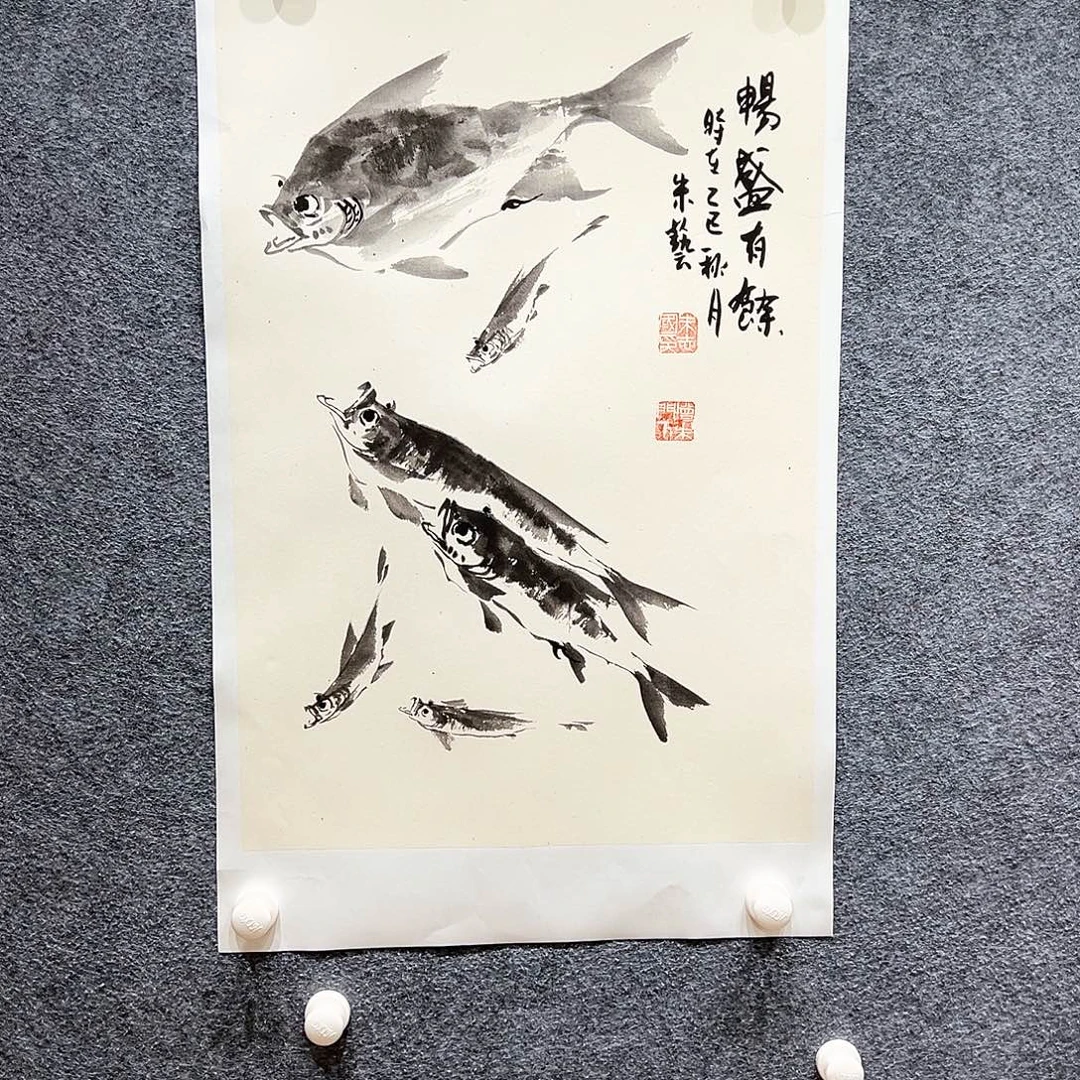 暢盛有餘
時在乙巳秋月
朱藝